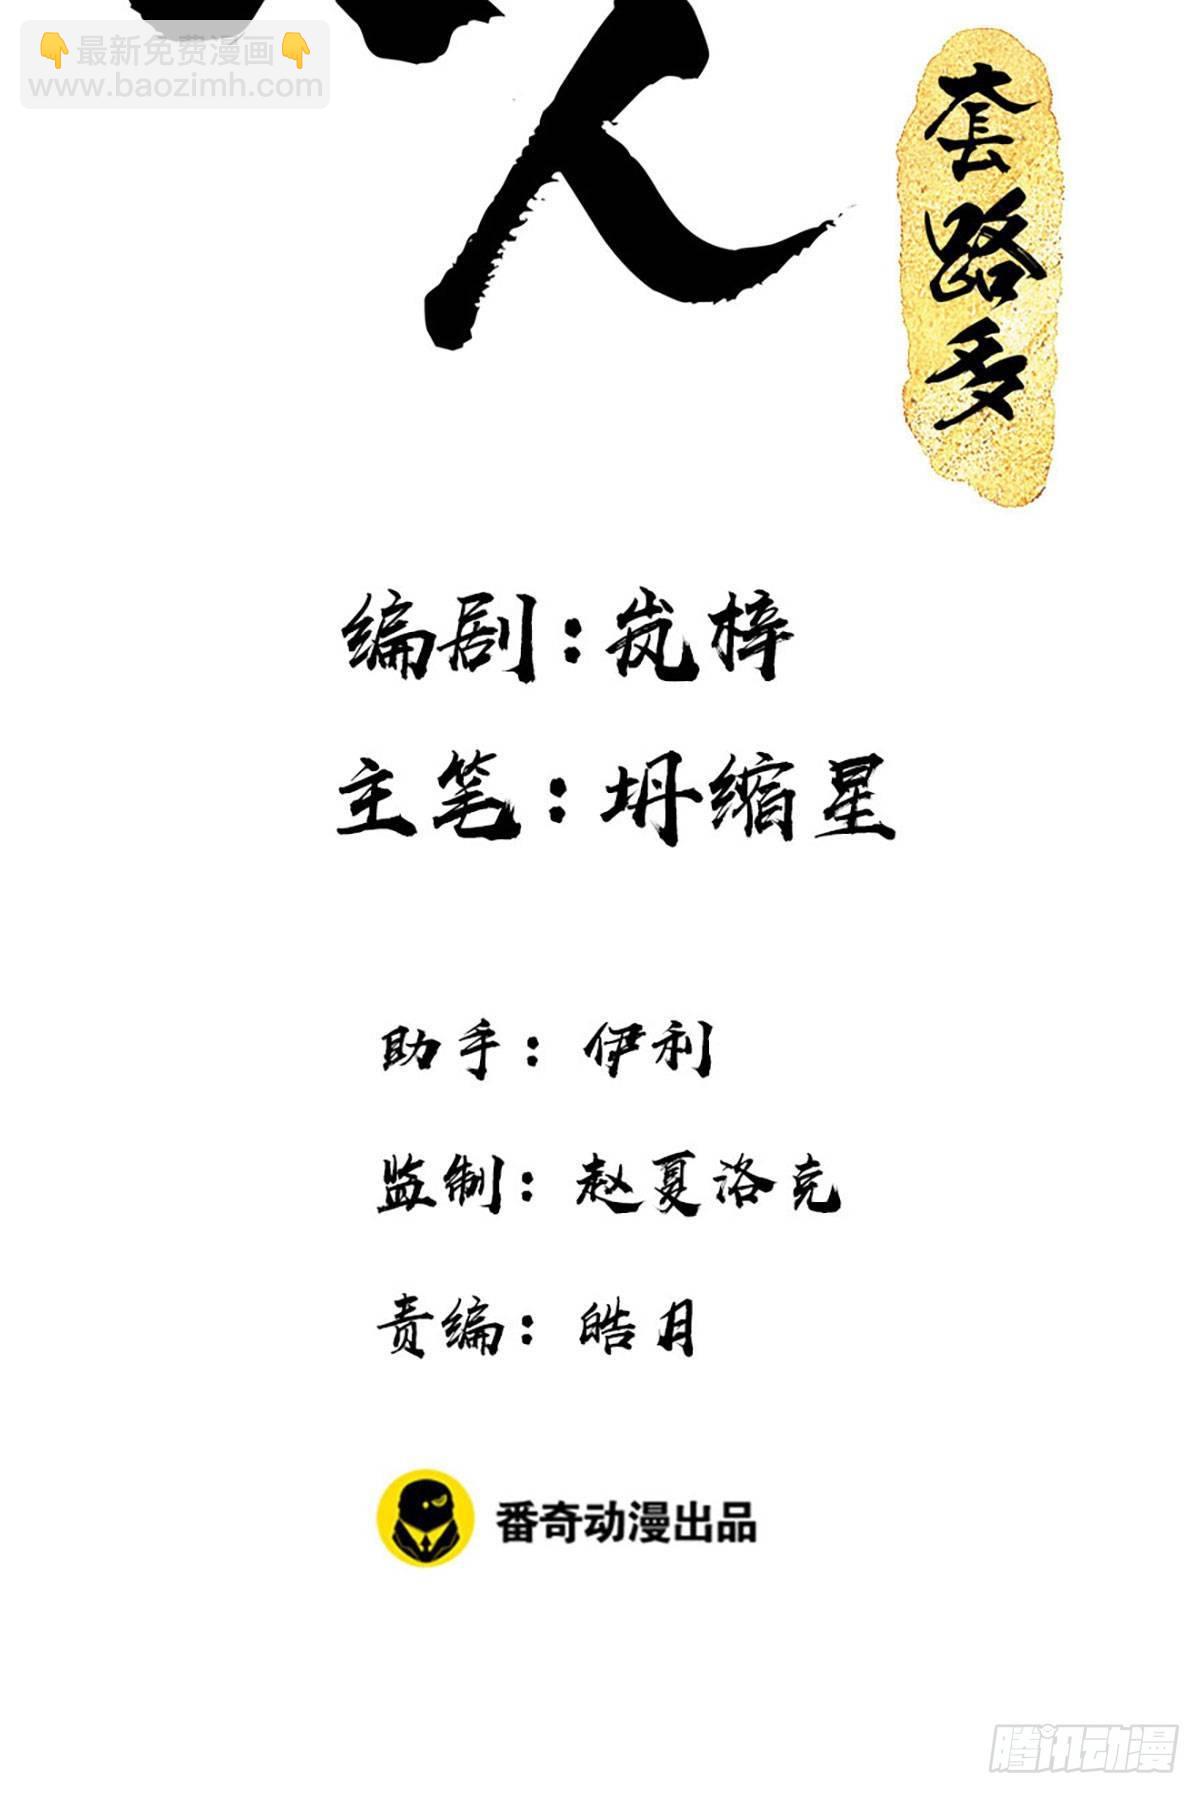 👇最新免费漫画👇
www.baozimh.com
人
套路多
编剧：岚梓
主笔：坍缩星
助手：伊利
监制：赵夏洛克
责编：皓月
番奇动漫出品
腾讯动漫